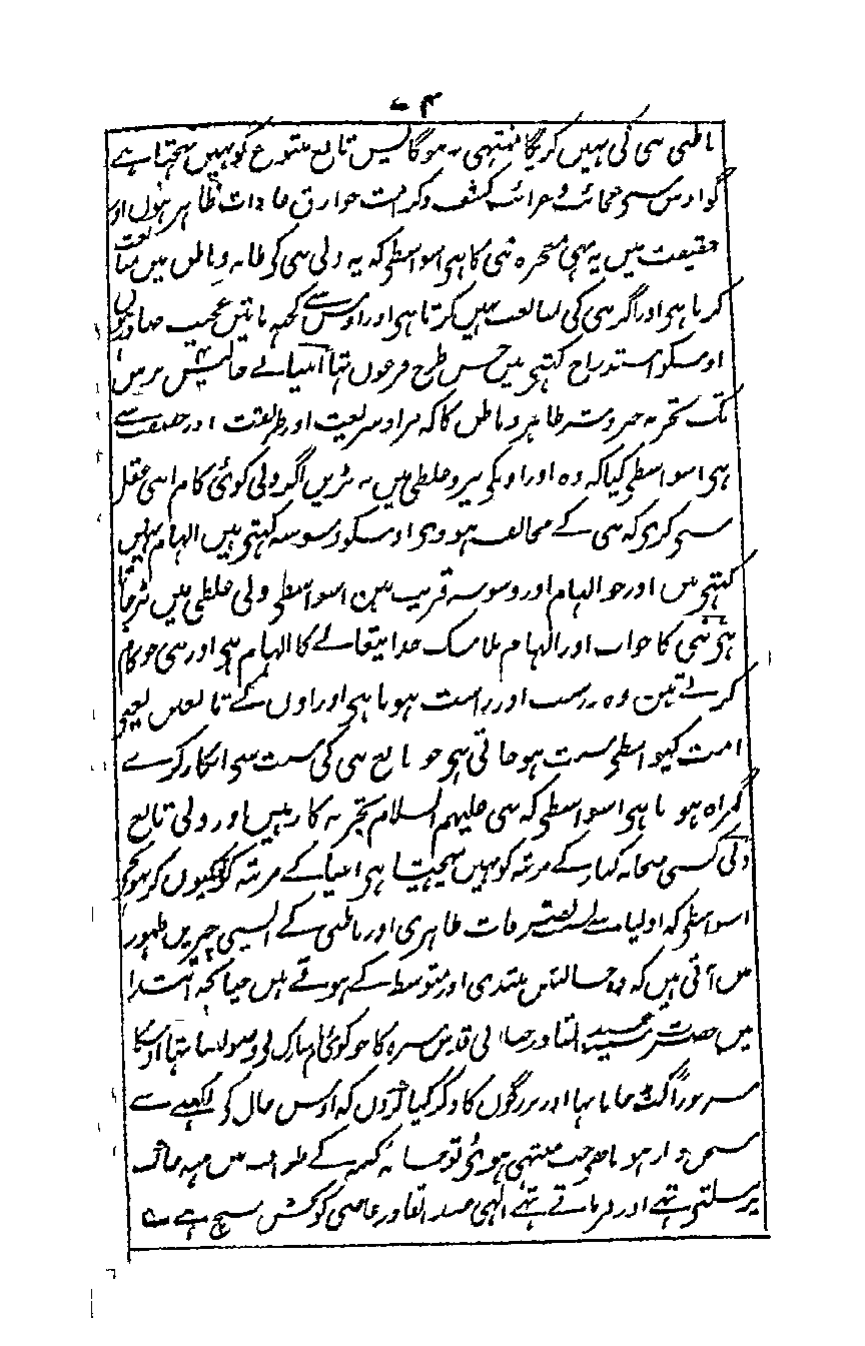 باطنی نبی کی نہیں کریگا منتہی نہ ہوگا پس تابع متبوع کو نہیں پہنچتا ہے
گو اوس سی عجائب و غرائب کشف و کرامت خوارق عادات ظاہر ہوں اور
حقیقت میں یہ بھی معجزہ نبی کا ہی اسواسطی کہ یہ ولی نبی کی ظاہر و باطن میں متابعت
کرتا ہی اور اگر نبی کی متابعت نہیں کرتا ہی اور اوس سے کچھ باتیں عجیب صادر ہوں
اوسکو استدراج کہتی ہیں جس طرح فرعون تھا انبیا نے چالیس برس
تک تجربہ ظاہر و باطن کا کہ مراد شریعت اور طریقت اور حقیقت سے
ہی اسواسطی کیا کہ وہ اور اونکی پیرو غلطی میں نہ پڑیں اگر ولی کوئی کام اپنی عقل
سی کری کہ نبی کے مخالف ہووی اوسکو وسوسہ کہتی ہیں الہام نہیں
کہتی ہیں اور جو الہام اور وسوسہ قریب ہین اسواسطی ولی غلطی میں پڑ جاتا
ہی نبی کا خواب اور الہام بلا شک خدایتعالے کا الہام ہی اور نبی جو کام
کرتے ہین وہ درست اور راست ہوتا ہی اور اون کے تابعین یعنی
امت کیواسطی سنت ہو جاتی ہی جو تابع نبی کی سنت سی انکار کرے
گمراہ ہوتا ہی اسواسطی کہ نبی علیہم السلام تجربہ کار ہیں اور ولی تابع
ولی کسی صحابہ کبار کے مرتبہ کو نہیں پہنچتا ہی انبیا کے مرتبہ کو کیوں کر پہونچی
اسواسطی کہ اولیا سے تصرفات ظاہری اور باطنی کے ایسی چیزیں ظہور
میں آتی ہیں کہ وہ حالتیں مبتدی اور متوسط کے ہوتے ہیں چنانچہ ابتدا
میں حضرت سید عبد القادر جیلانی قدس سرہ کا جو کوئی نام مبارک بی وضو لیتا تہا اوسکا
سر فوراً کٹ جاتا تہا اور بزرگوں کا ذکر کیا کروں کہ اوس حال کی لکھنے سے
ہوتا ہی جب منتہی ہوئی تو خانہ کعبہ کے طواف میں
پر ملتی تہے اور فرماتے تہے الہی عبد القادر عاصی کو بخش سچ ہے